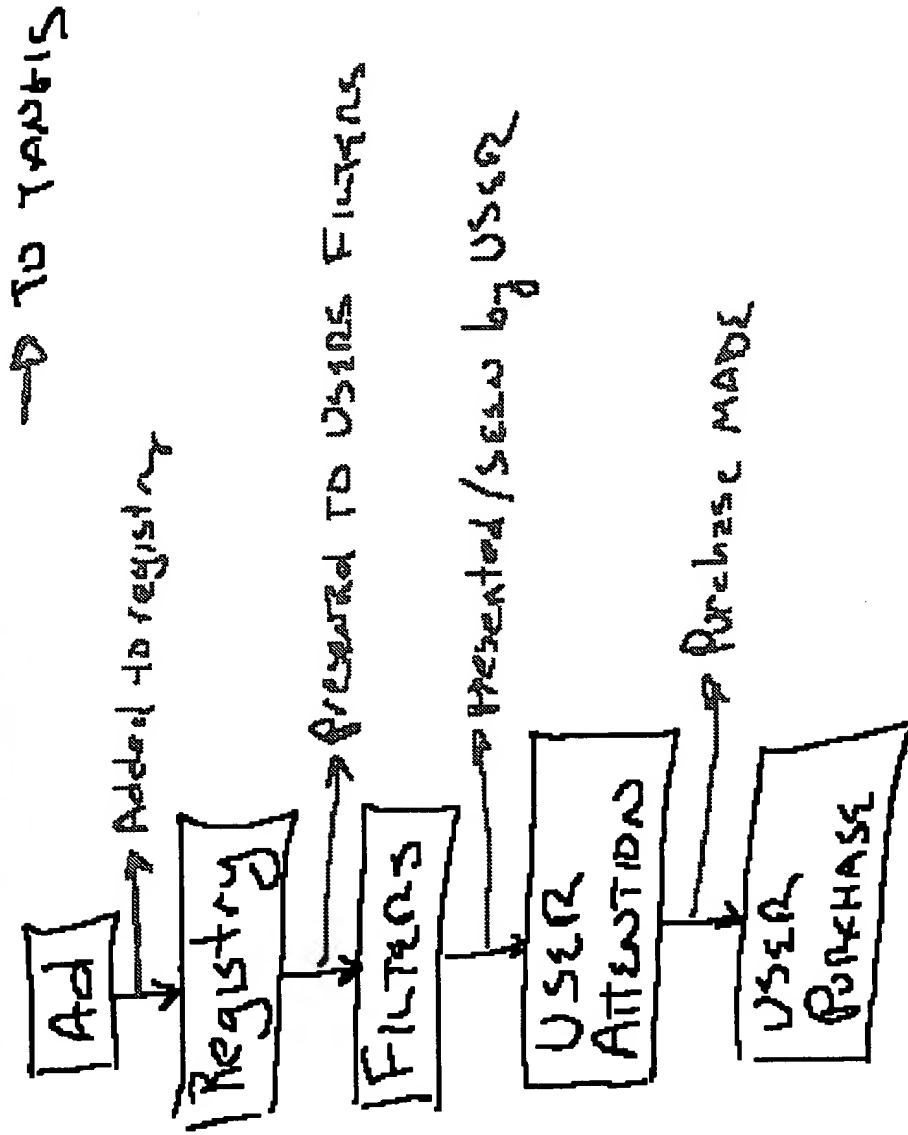 → TO TANGIS
Ad
Added to registry
Registry
Presented TO USERS FILTERS
FILTERS
Presented/SEEN by USER
USER
ATTENTION
Purchase MADE
USER
PURCHASE